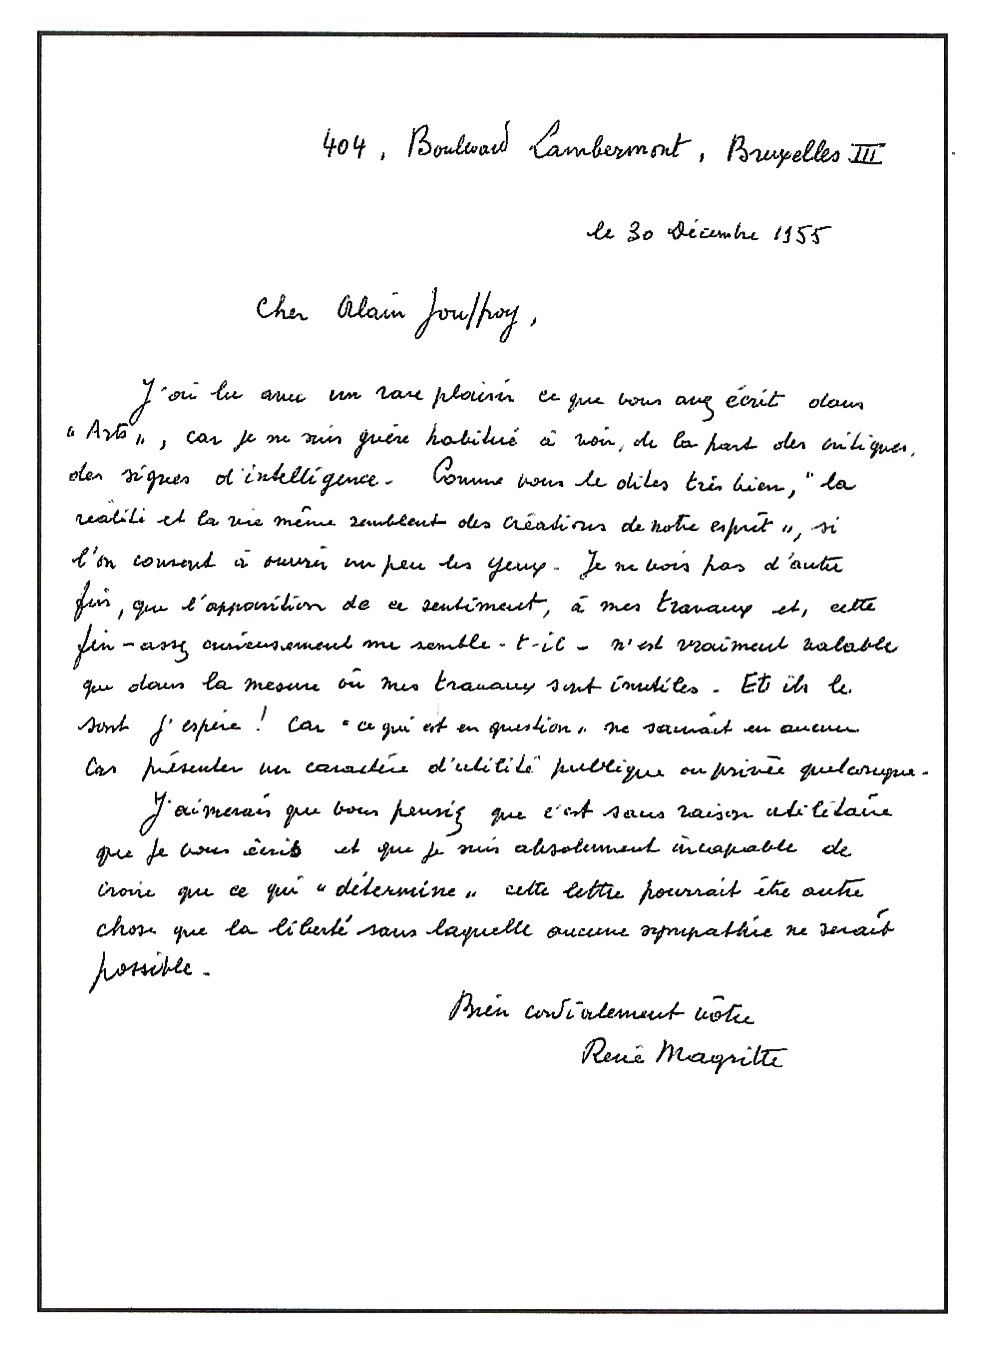 404, Boulevard Lambermont, Bruxelles III
le 30 Décembre 1955
Cher Alain Jouffroy,
J'ai lu avec un rare plaisir ce que vous avez écrit dans
"Arts", car je ne suis guère habitué à voir, de la part des critiques,
des signes d'intelligence. Comme vous le dites très bien, "la
réalité et la vie même semblent des créations de notre esprit", si
l'on consent à ouvrir un peu les yeux. Je ne vois pas d'autre
fin, que l'apparition de ce sentiment, à mes travaux et, cette
fin - assez curieusement me semble-t-il - n'est vraiment valable
que dans la mesure où mes travaux sont inutiles. Et ils le
sont j'espère ! Car "ce qui est en question" ne saurait en aucun
cas présenter un caractère d'utilité publique ou privée quelconque.
J'aimerais que vous pensiez que c'est sans raison utilitaire
que je vous écris et que je suis absolument incapable de
croire que ce qui "détermine" cette lettre pourrait être autre
chose que la liberté sans laquelle aucune sympathie ne serait
possible.
Bien cordialement vôtre
René Magritte